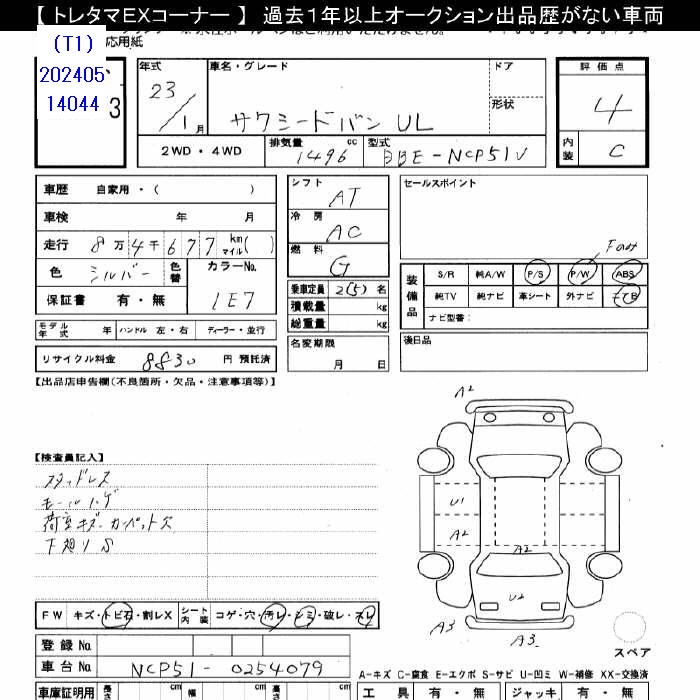 【 トレタマEXコーナー 】 過去1年以上オークション出品歴がない車両
応用紙
(T1)
202405
14044
3
年式 車名・グレード ドア 評価点
23/1月 サクシードバン UL 形状 4
2WD・4WD 排気量 1496 cc 型式 DBE-NCP51V 内装 C
車歴 自家用・( )
車検 年 月
走行 8万4千677 km マイル( )
色 シルバー 色替 カラーNo. 1E7
保証書 有・無
シフト AT
冷房 AC
燃料 G
乗車定員 2(5) 名
積載量 kg
総重量 kg
セールスポイント
Fのみ
装備品 S/R 純A/W P/S P/W ABS
純TV 純ナビ 革シート 外ナビ エアB
ナビ型番:
モデル年式 年 ハンドル 左・右 ディーラー・並行
名変期限 月 日
後日品
リサイクル料金 8830 円 預託済
【出品店申告欄(不良箇所・欠品・注意事項等)】
【検査員記入】
スタッドレス
モールハゲ
荷室キズ カーペット欠
下廻りS
A2
U1
A2
A2
U2
A3
A3
スペア
FW キズ・トビ石・割レX シート内装 コゲ・穴・汚レ・シミ・破レ・スレ
登録No
車台No NCP51-0254079
A-キズ C-腐食 E-エクボ S-サビ U-凹ミ W-補修 XX-交換済
車庫証明用 長さ cm 幅 cm 高さ cm
工具 有・無 ジャッキ 有・無